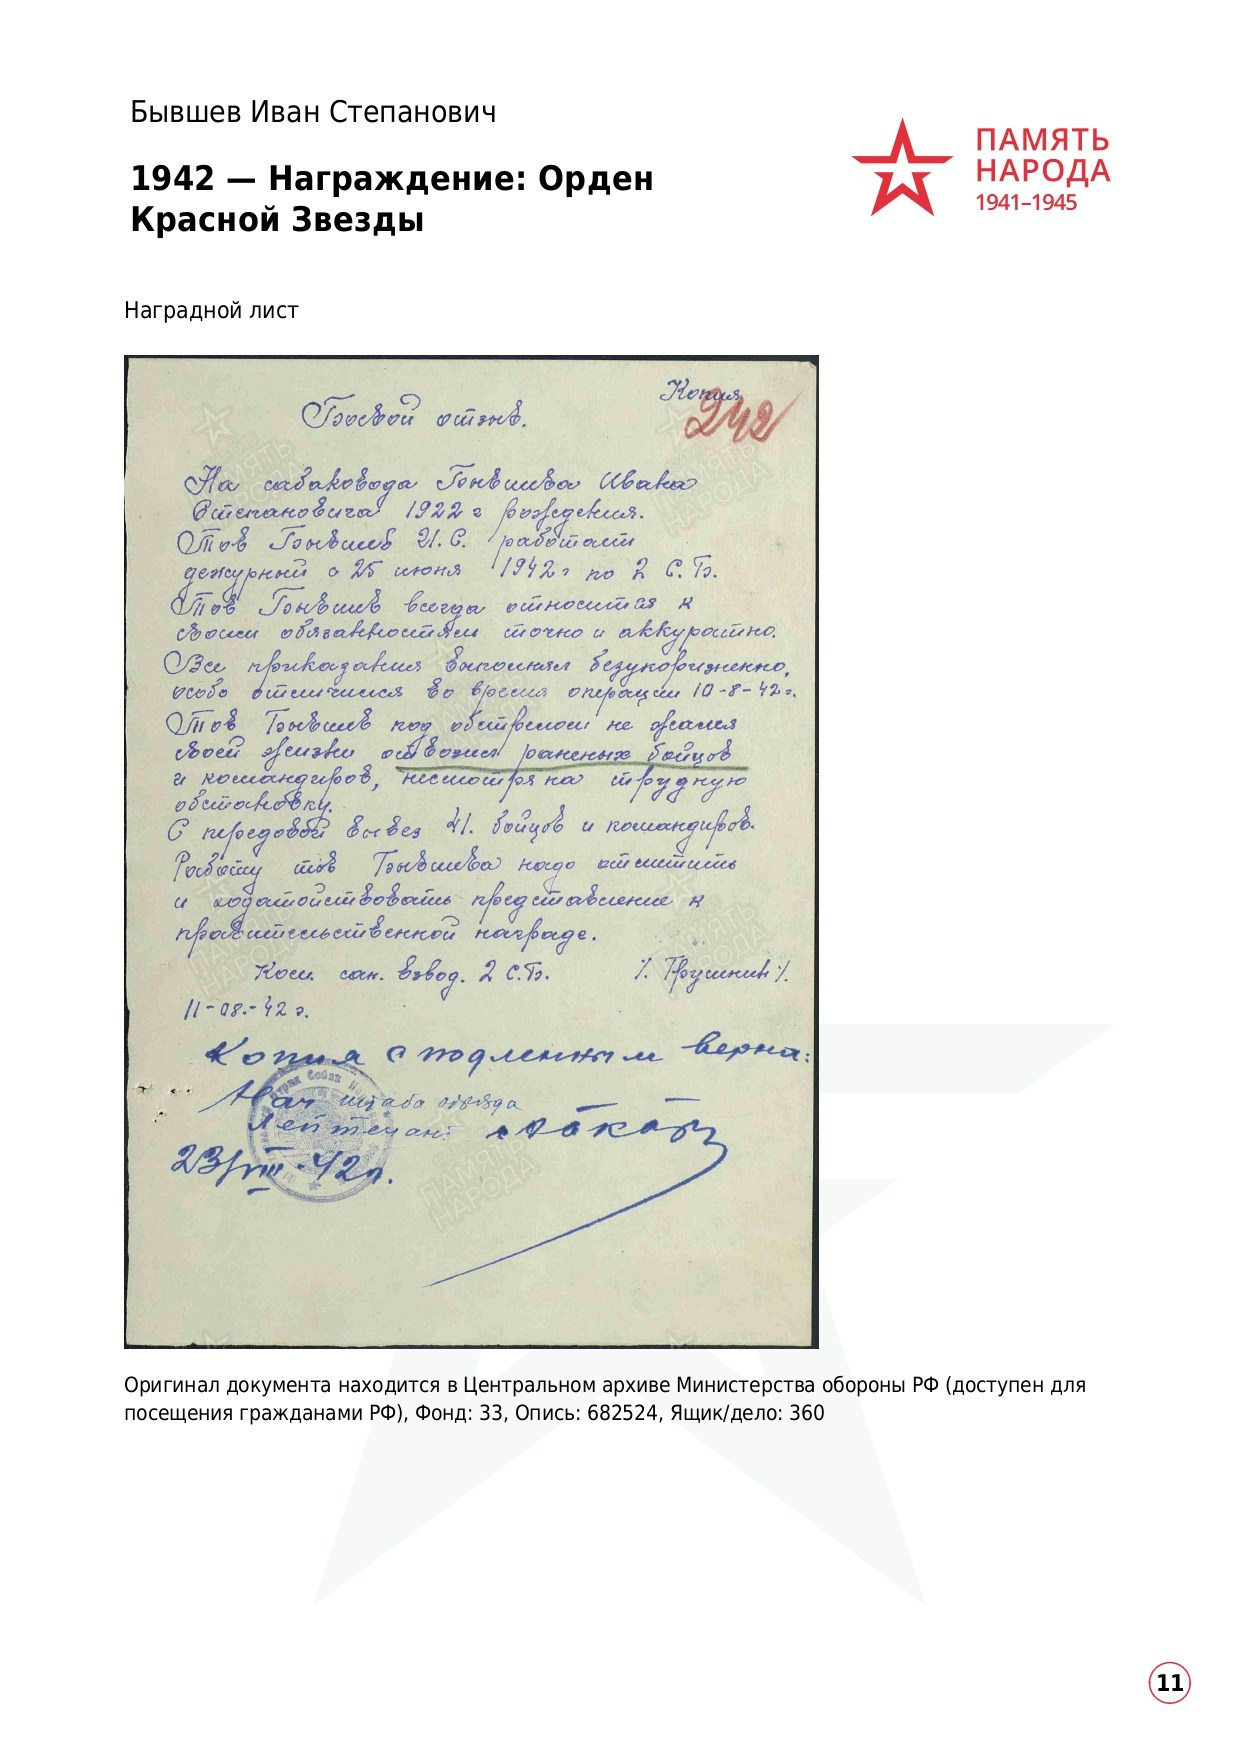 Бывшев Иван Степанович
ПАМЯТЬ
НАРОДА
1941–1945
1942 — Награждение: Орден
Красной Звезды
Наградной лист
Копия
242
Боевой отзыв.
На сабаковода Бывшева Ивана
Степановича 1922 г рождения.
Тов Бывшев И. С. работает
дежурный с 25 июня 1942 г по 2 С.Б.
Тов Бывшев всегда относится к
своим обязанностям точно и аккуратно.
Все приказания выполнял безукоризненно,
особо отличился во время операции 10-8-42 г.
Тов Бывшев под обстрелом не жалея
своей жизни отвозил раненых бойцов
и командиров, несмотря на трудную
обстановку.
С передовой вывез 41. бойцов и командиров.
Работу тов Бывшева надо отметить
и ходатойствовать представление к
правительственной награде.
Ком. сан. взвод. 2 С.Б. /. Трушник /.
11-08.-42 г.
Копия с подленным верна:
Нач штаба отряда
Лейтенан:
23/VIII-42г.
Оригинал документа находится в Центральном архиве Министерства обороны РФ (доступен для
посещения гражданами РФ), Фонд: 33, Опись: 682524, Ящик/дело: 360
11